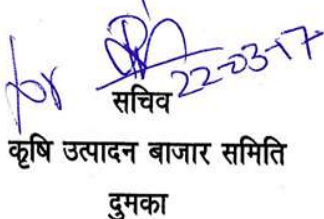 for
22-03-17
सचिव
कृषि उत्पादन बाजार समिति
दुमका